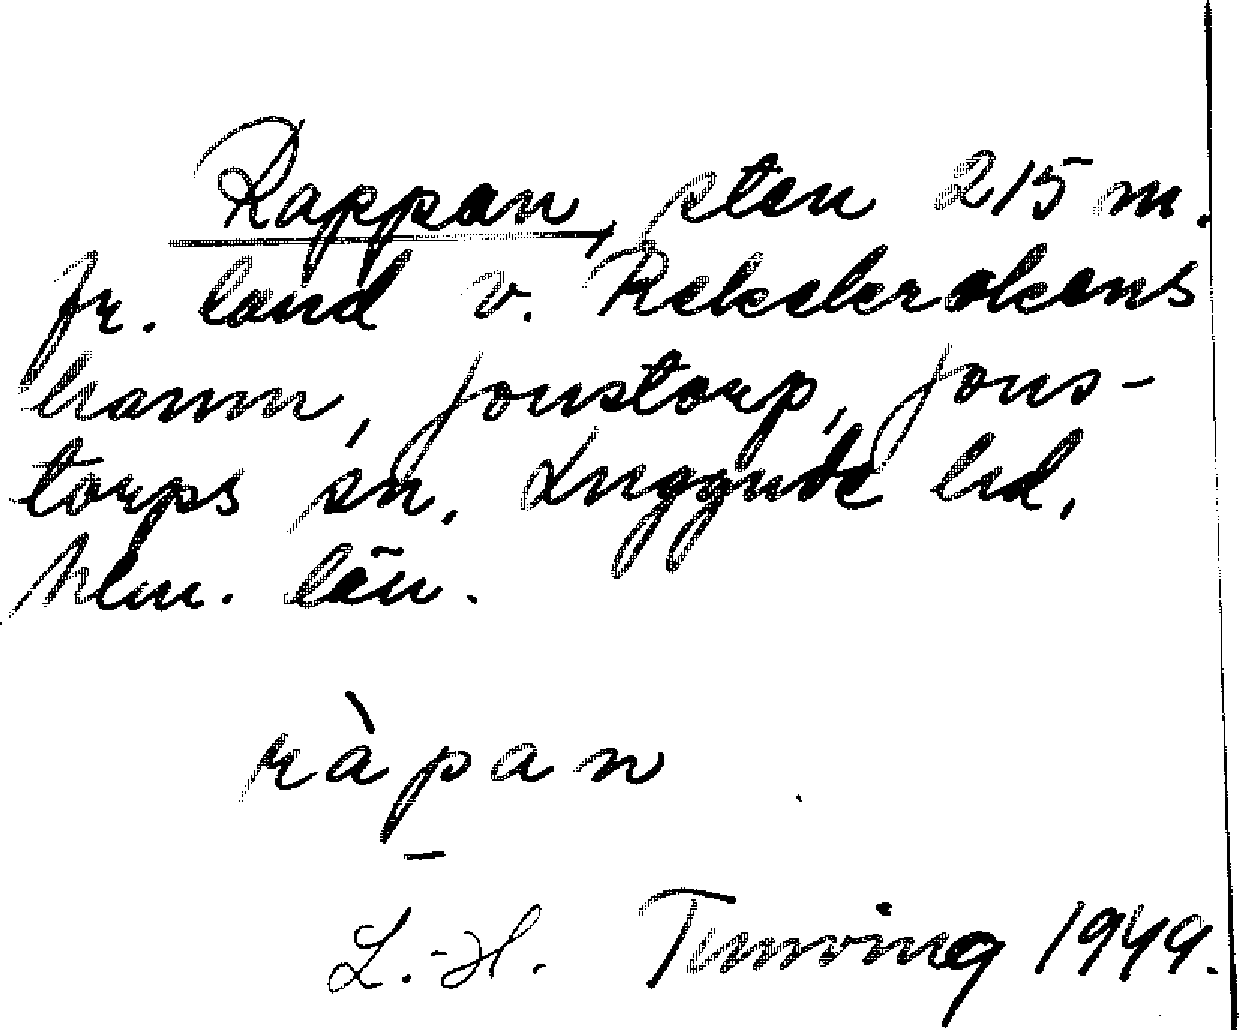 Rappan, sten 215 m.
fr. land v. Rekekrokens
hamn, Jonstorp, Jons-
torps sn. Luggude hd,
Hlm. län.
ràpan
L.-H. 1949.